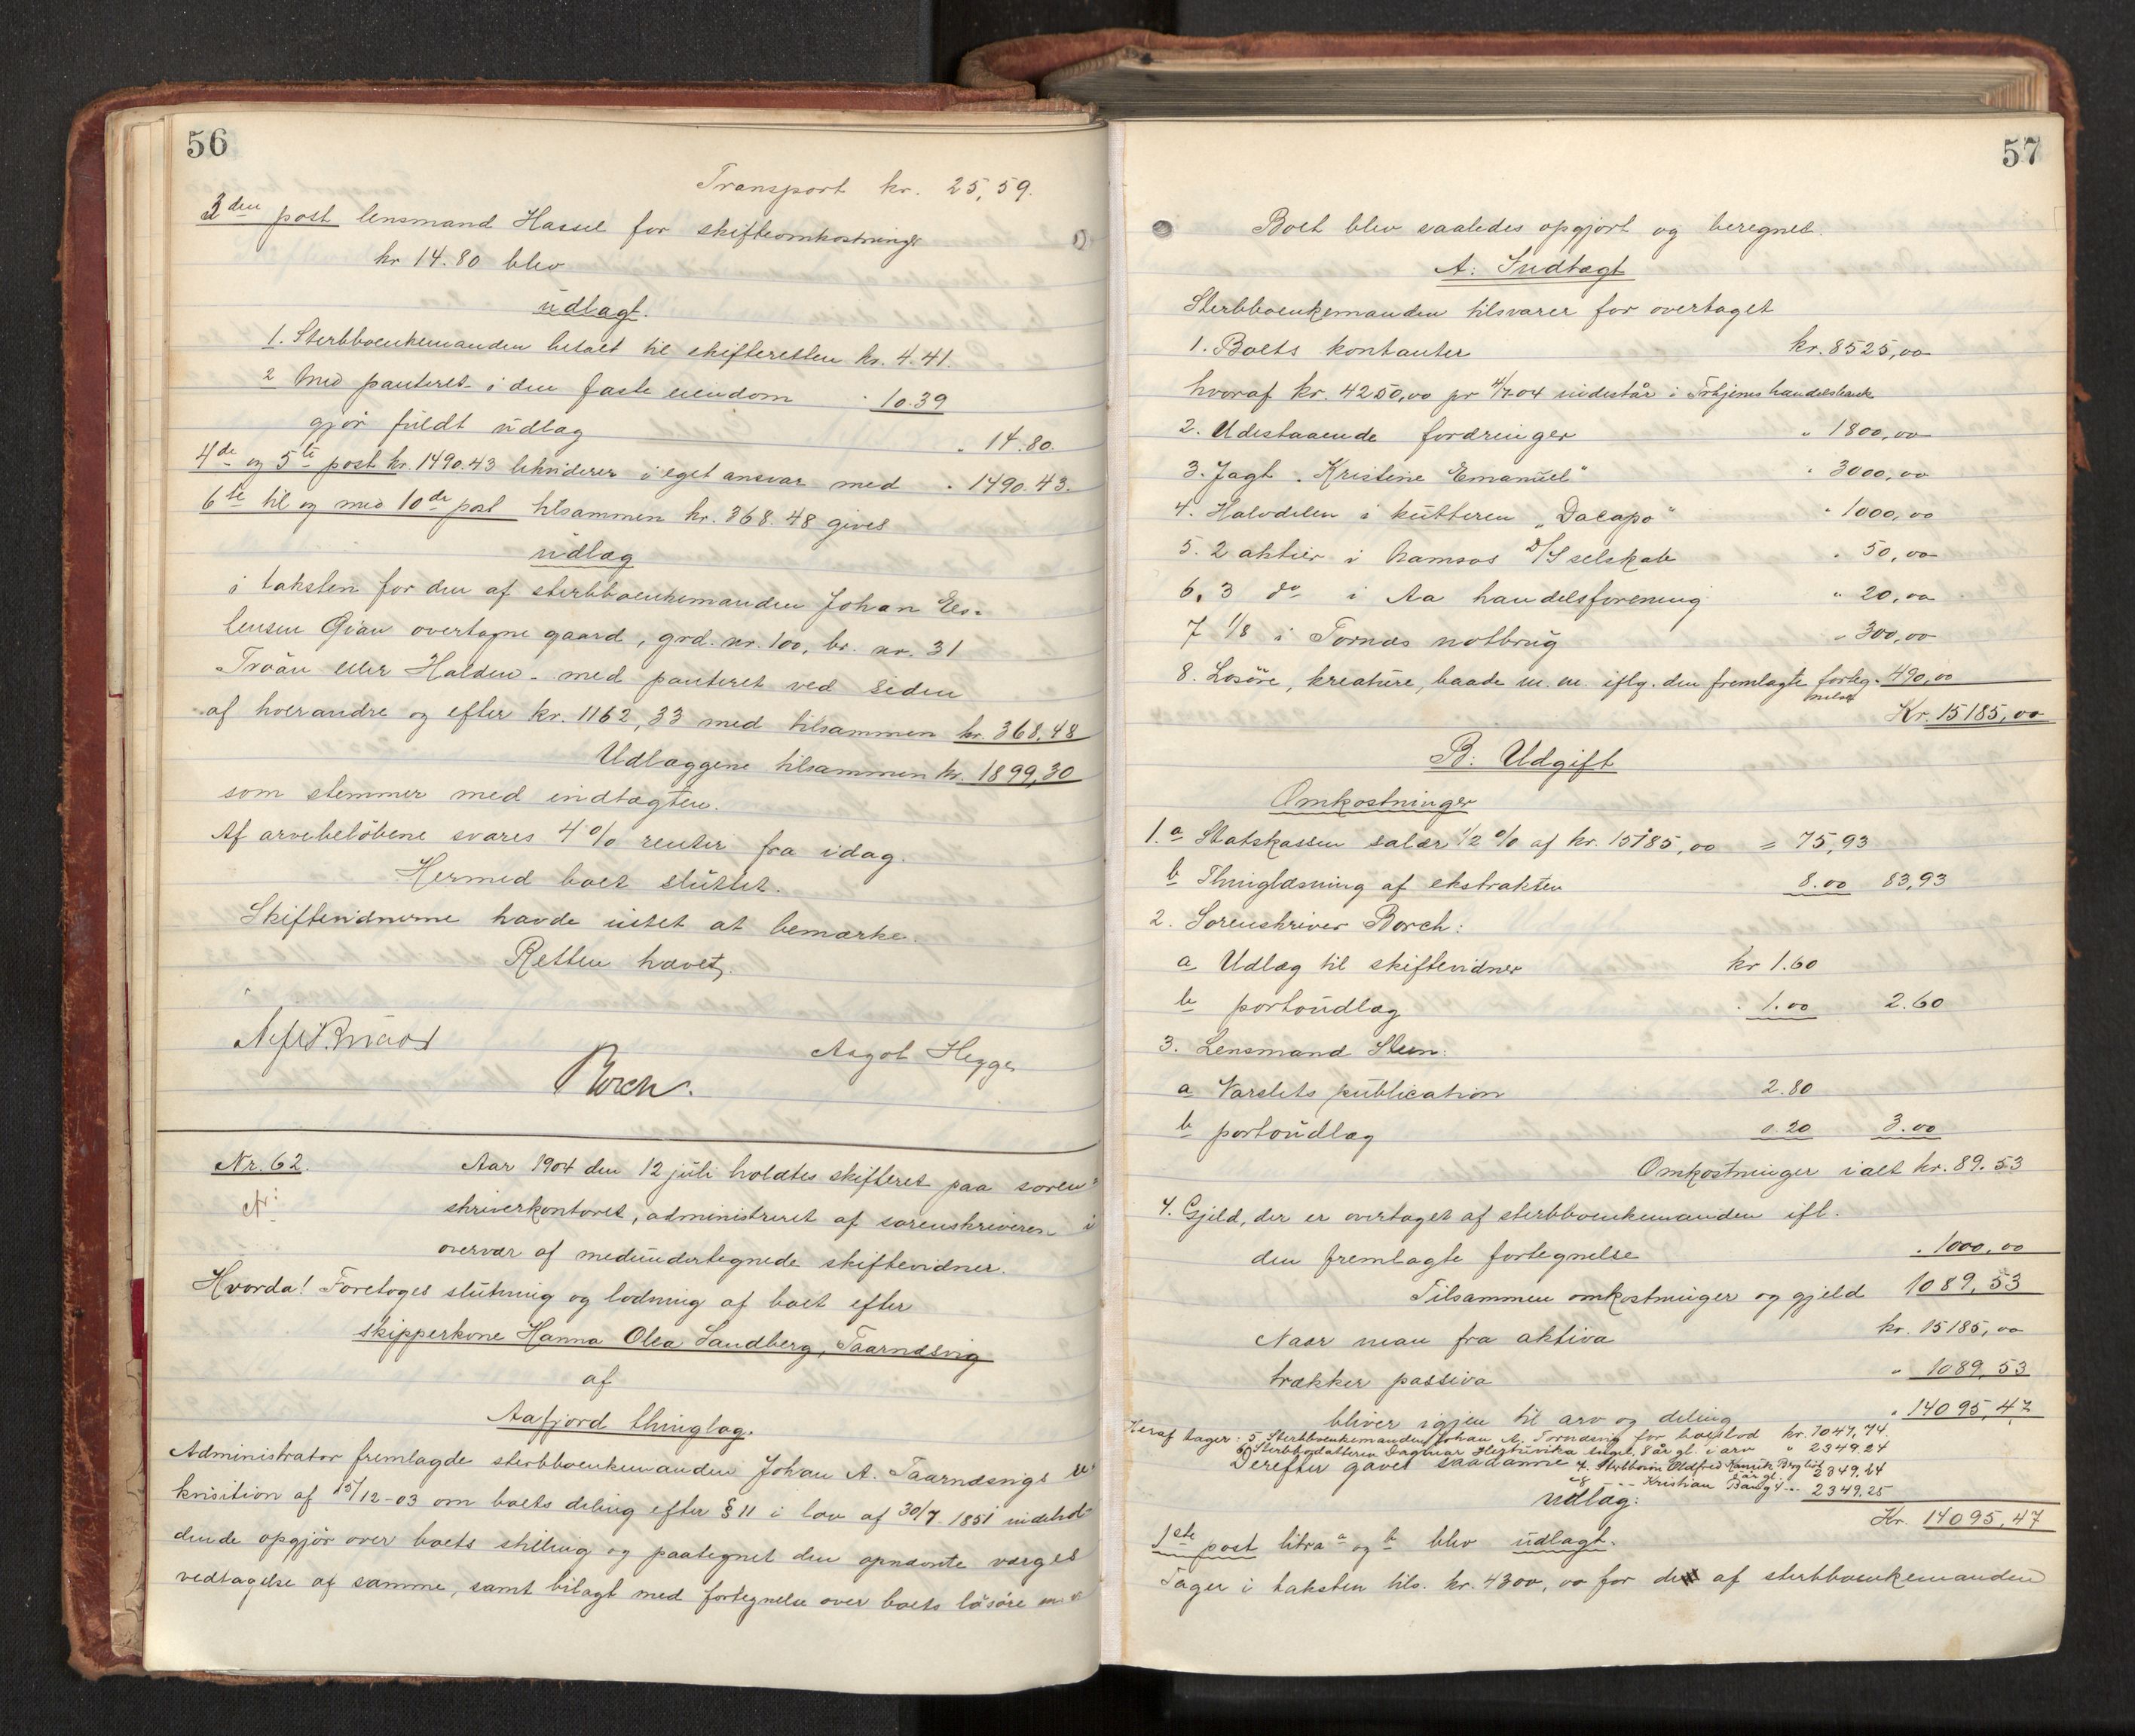 56
Transport kr. 25,59.
3den post lensmand Hassel for skifteomkostninger
kr 14.80 blev
udlagt.
1. Sterbboenkemanden betalt til skifteretten kr. 4.41.
2 Med panteret i den faste eiendom " 10.39
gjør fuldt udlag " 14.80.
4de og 5te post kr. 1490.43 likviderer i eget ansvar med " 1490.43.
6te til og med 10de post tilsammen kr. 368.48 gives
udlæg
i taksten for den af sterbboenkemanden Johan
overtagne gaard, grd. nr. 100, br. nr. 31
Troän eller Halden - med panteret ved siden
af hverandre og efter kr. 1162,33 med tilsammen kr. 368,48
Udlæggene tilsammen kr. 1899,30
som stemmer med indtægten.
Af arvebeløbene svares 4% renter fra idag.
Hermed boet sluttet.
Skiftevidnerne havde intet at bemærke.
Retten hævet.
Aagot Hegge
Borch.
Nr. 62.
Aar 1904 den 12 juli holdtes skifteret paa soren-
skriverkontoret, administreret af sorenskriveren i
overvær af medundertegnede skiftevidner.
Hvorda! Foretoges slutning og lodning af boet efter
skipperkone Hanna Olea Sandberg, Taarnæsvig
af
Aafjord thinglag.
Administrator fremlagde sterbboenkemanden Johan A. Taarnæsvigs re-
kvisition af 15/12-03 om boets deling efter § 11 i lov af 30/7 1851 indehol-
dende opgjør over boets stilling og paategnet den opnævnte værges
vedtagelse af samme, samt bilagt med fortegnelse over boets løsøre
57
Boet blev saaledes opgjort og beregnet.
A. Indtægt
Sterbboenkemanden tilsvarer for overtaget
1. Boets kontanter kr. 8525,00
hvoraf kr. 4250,00 pr 4/7 04 indestår i Trhjems handelsbank
2. Udestaaende fordringer " 1800,00
3. Jagt "Kristine Emanuel" " 3000,00
4. Halvdelen i kutteren "Dacapo" " 1000,00
5. 2 aktier i Namsos D/S selskab " 50,00
6. 3 do i Aa handelsforening " 20,00
7 1/8 i Tornæs notbrug " 300,00
8. Løsøre, kreature, baade m. m. iflg. den fremlagte forteg- 490,00
nelse
Kr. 15185,00
B. Udgift
Omkostninger
1. a Statskassen salær 1/2 % af kr. 15185,00 = 75,93
b Thinglæsning af ekstrakten 8.00 83,93
2. Sorenskriver Borch:
a Udlæg til skiftevidner kr 1.60
b portoudlæg " 1.00 2.60
3. Lensmand Steen:
a Varslets publication 2.80
b portoudlæg 0.20 3.00
Omkostninger ialt kr. 89.53
4. Gjeld, der er overtaget af sterbboenkemanden ifl.
den fremlagte fortegnelse " 1000,00
Tilsammen omkostninger og gjeld 1089,53
Naar man fra aktiva kr. 15185,00
trækker passiva " 1089,53
bliver igjen til arv og deling " 14095,47
Heraf tager: 5. Sterbboenkemanden Johan A. Tornæsvig for boeslod kr. 7047.74.
6 Sterbbodatteren Dagmar 8 år gl. i arv " 2349.24
7. Sterbbosøn 2349.24
8 - - Kristian 2349.25
Kr. 14095,47
Derefter gaves saadanne
udlæg:
1ste post litra a og b blev udlagt.
Tager i taksten tils. kr. 4300,00 for de af sterbboenkemanden